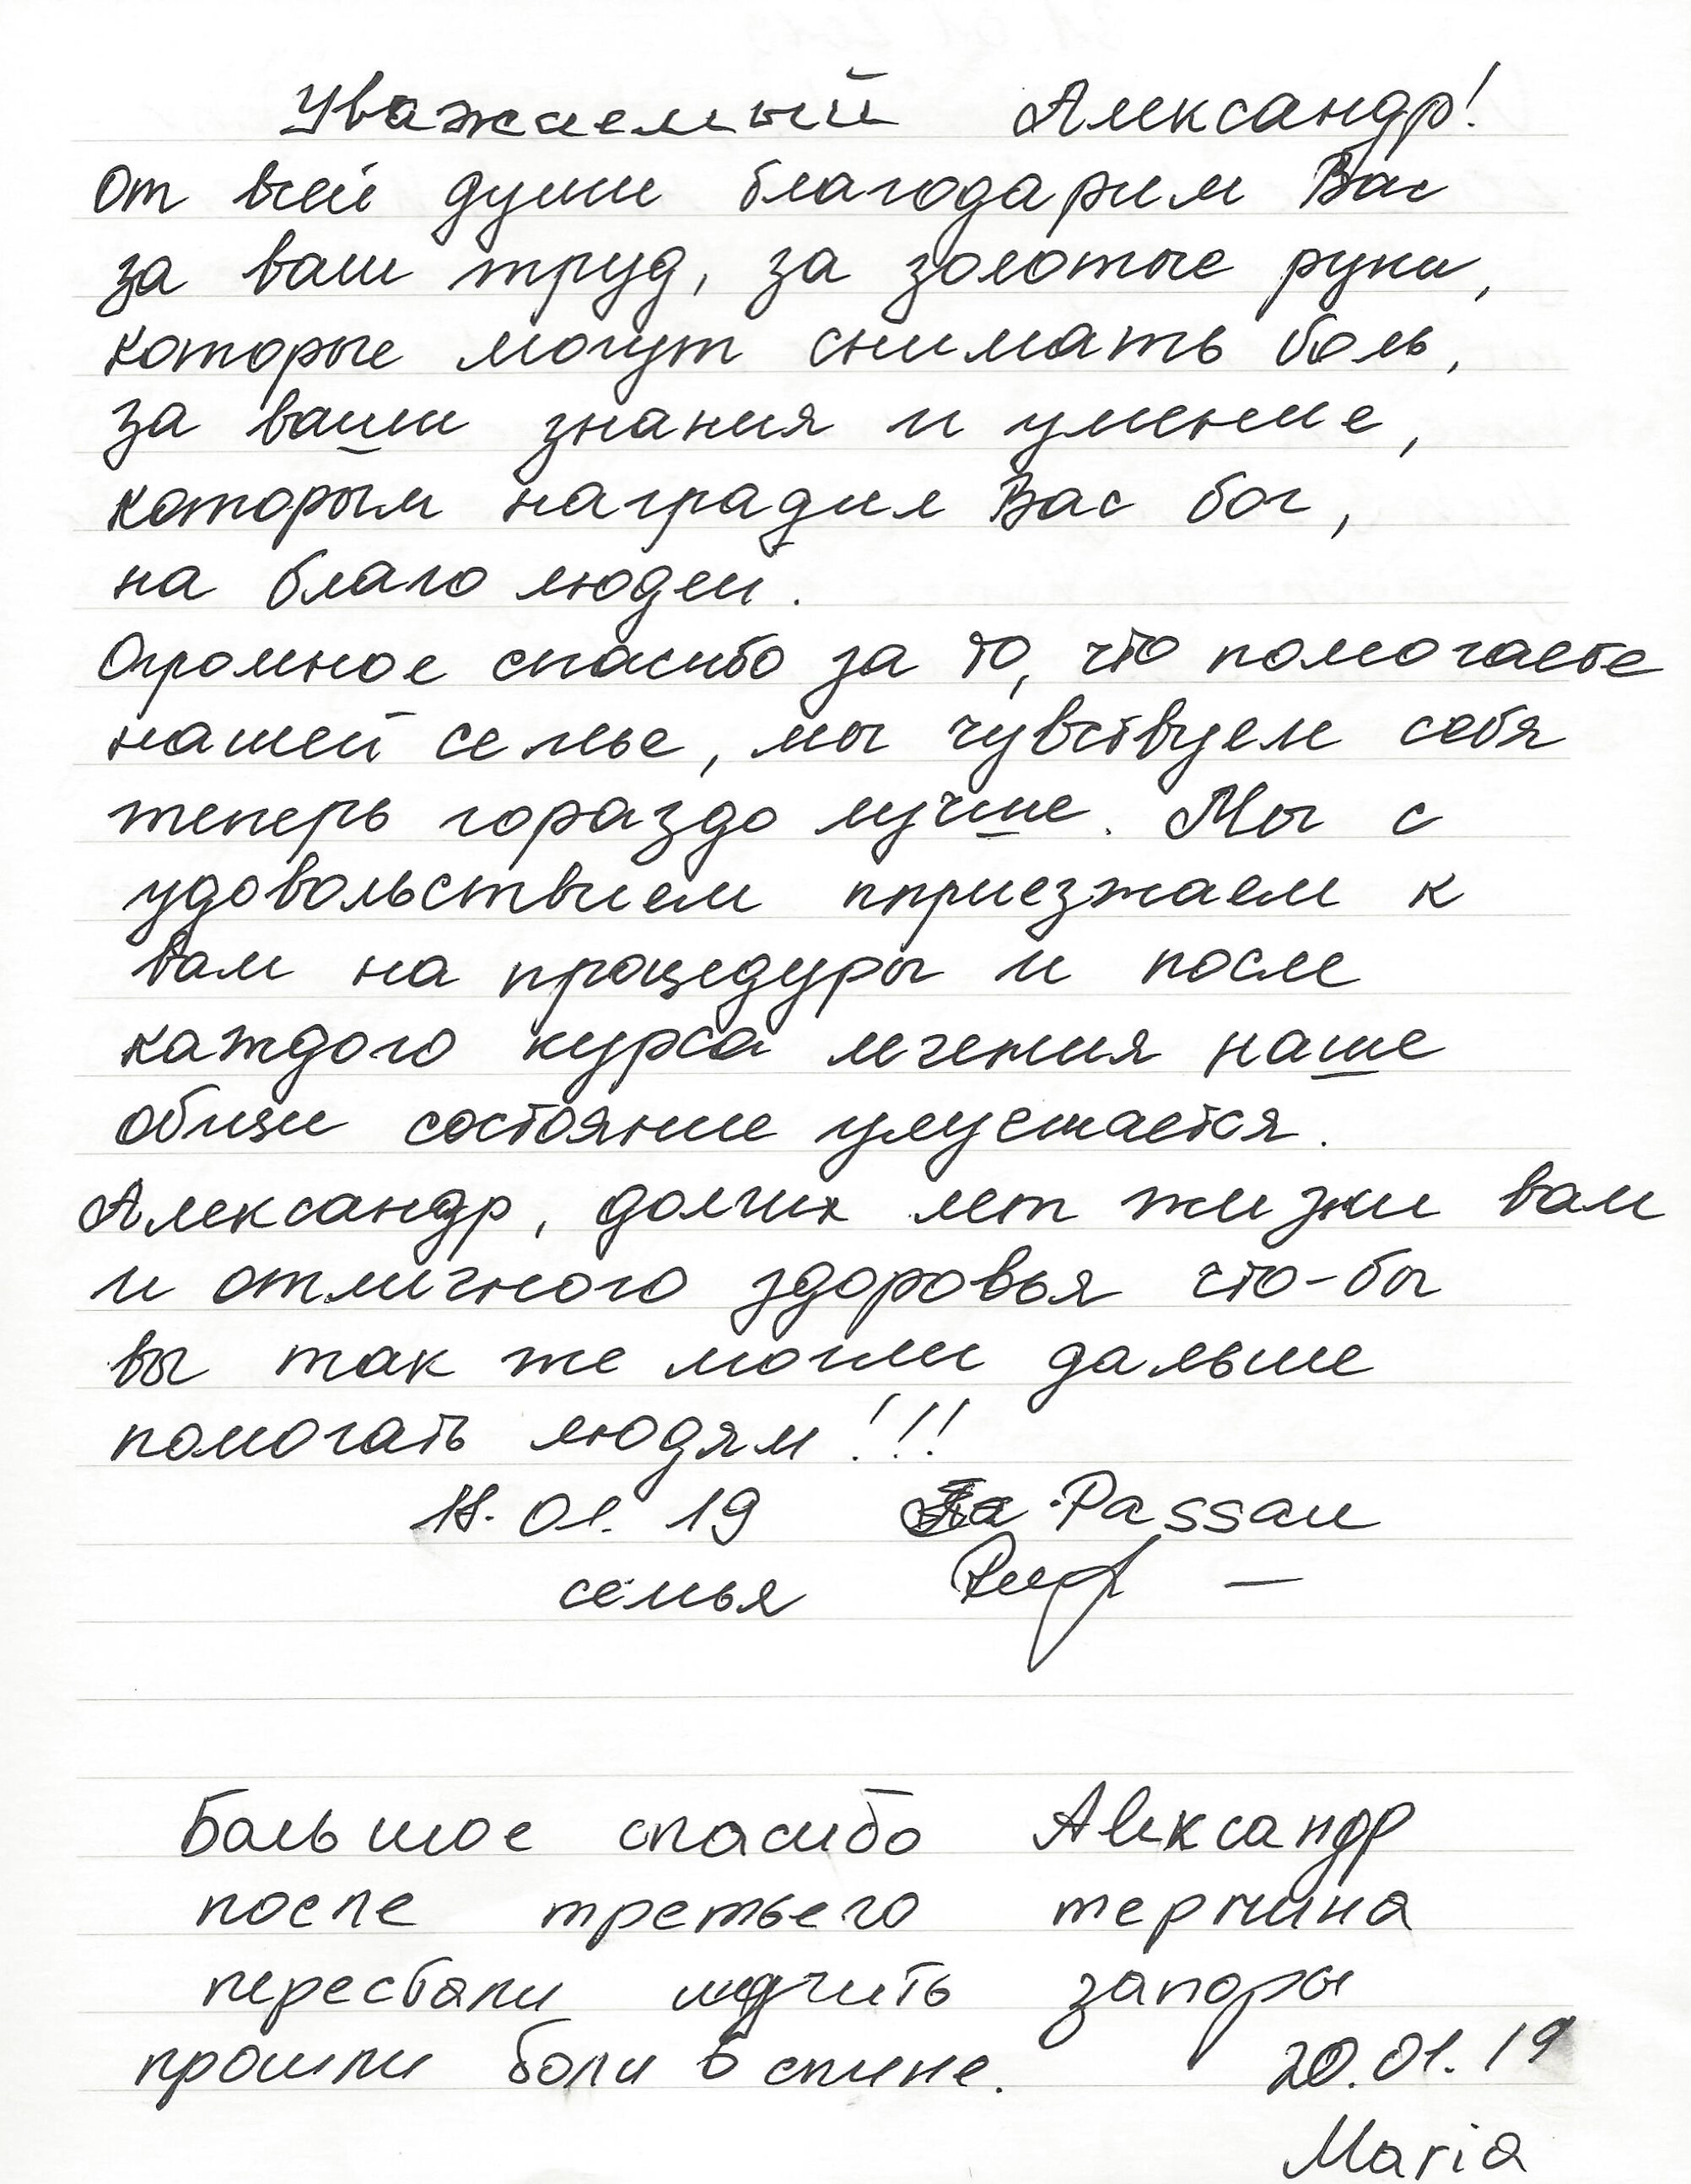 Уважаемый Александр!
От всей души благодарим Вас
за ваш труд, за золотые руки,
которые могут снимать боль,
за ваши знания и умение,
которым наградил Вас бог,
на благо людей.
Огромное спасибо за то, что помогаете
нашей семье, мы чувствуем себя
теперь гораздо лучше. Мы с
удовольствием пприезжаем к
вам на процедуры и после
каждого курса лечения наше
общи состояние улучшается.
Александр, долгих лет жизни вам
и отличного здоровья что-бы
вы так же могли дальше
помогать людям!!!
18.01.19 Passau
семья
Большое спасибо Александр
после третьего термина
перестали мучить запоры
прошли боли в спине. 20.01.19
Maria